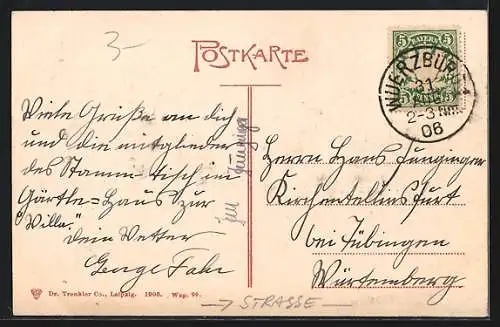 3-
POSTKARTE
5 BAYERN 5
WUERZBURG 1
31
2-3 Nm.
06
Viele Grüße an dich
und die mitglieder
des Stammtisch im
Gärtle=Haus zur
"Villa"
Dein Vetter
George Fahr
Herrn Hans Junginger
Kirchentellinsfurt
bei Tübingen
Württemberg
Junginger
Dr. Trenkler Co., Leipzig. 1905. Wzp. 99.
→ STRASSE —